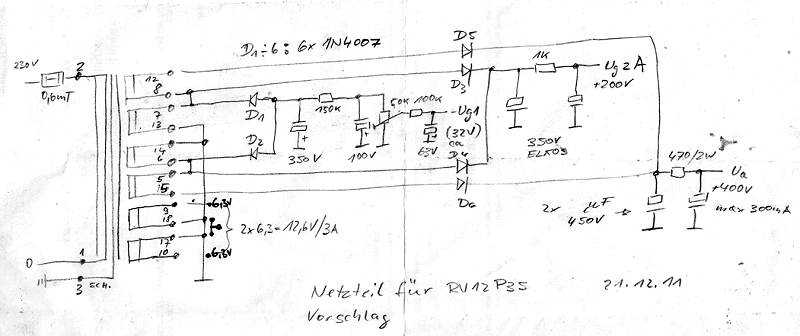 D1÷6: 6x 1N4007
230V
2
0,6mT
12
8
7
13
14
6
5
15
9
18
17
10
D5
D3
D1
D2
150K
50K
100K
350V
100V
-Ug1
(32V)
ca
63V
D4
D6
1K
Ug2A
+200V
350V
ELKOS
470/2W
Ua
+400V
max 300mA
2x
µF
450V
6,3V
2x6,3=12,6V/3A
6,3V
0
1
3
SCH.
Netzteil für RV12P35
21.12.11
Vorschlag